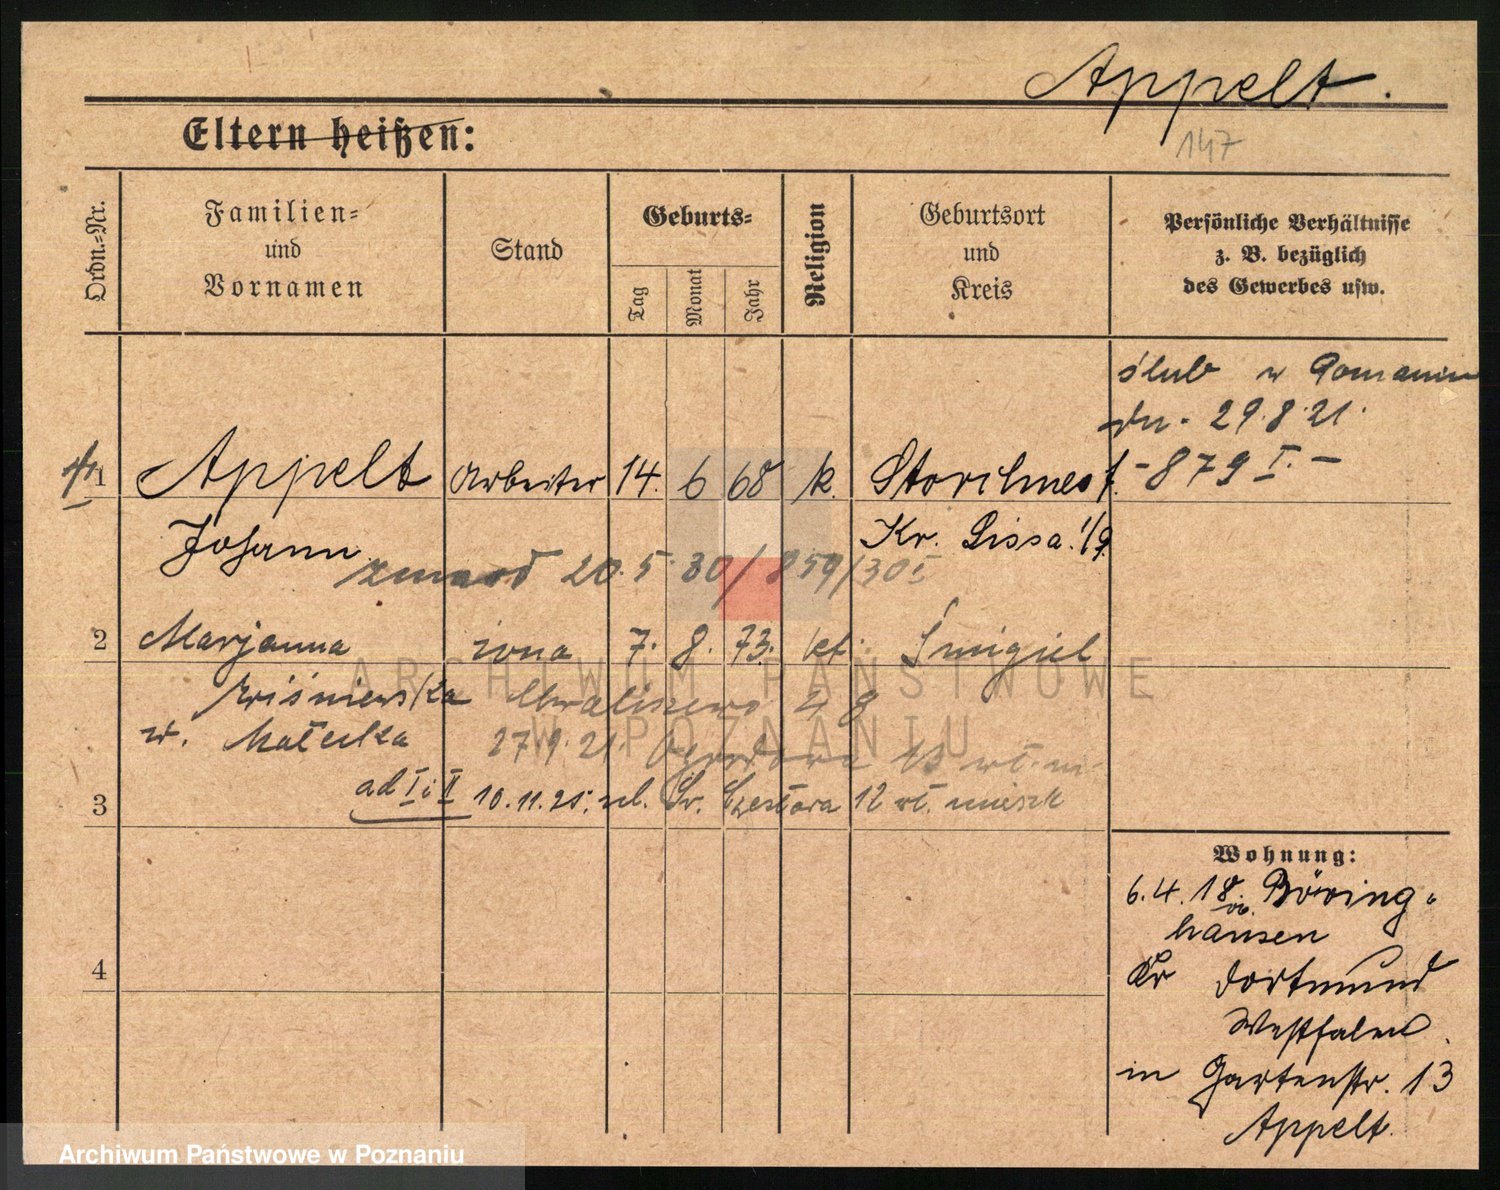 Appelt.
Eltern heißen:
147
Ordn.=Nr.
Familien=
und
Vornamen
Stand
Geburts=
Tag
Monat
Jahr
Religion
Geburtsort
und
Kreis
Persönliche Verhältnisse
z. B. bezüglich
des Gewerbes usw.
ślub w
dn. 29.8.21.
- 879 I. -
1 Appelt Arbeiter 14. 6 68 k. Storchnest.
Johann Kr. Lissa.
20.5 30/859/30 I
2 Marjanna żona 7. 8. 73. kt. Śmigiel
Wiśniewska
z. Małecka 27.9.21. Ogrodowa 13
3 ad I i II 10.11.25. ul. Św. Czesława 12 wł. mieszk
4
Wohnung:
6.4.18. Böving-
hausen
Kr Dortmund
Westfalen
in Gartenstr. 13
Appelt.
ARCHIWUM PAŃSTWOWE
W POZNANIU
Archiwum Państwowe w Poznaniu